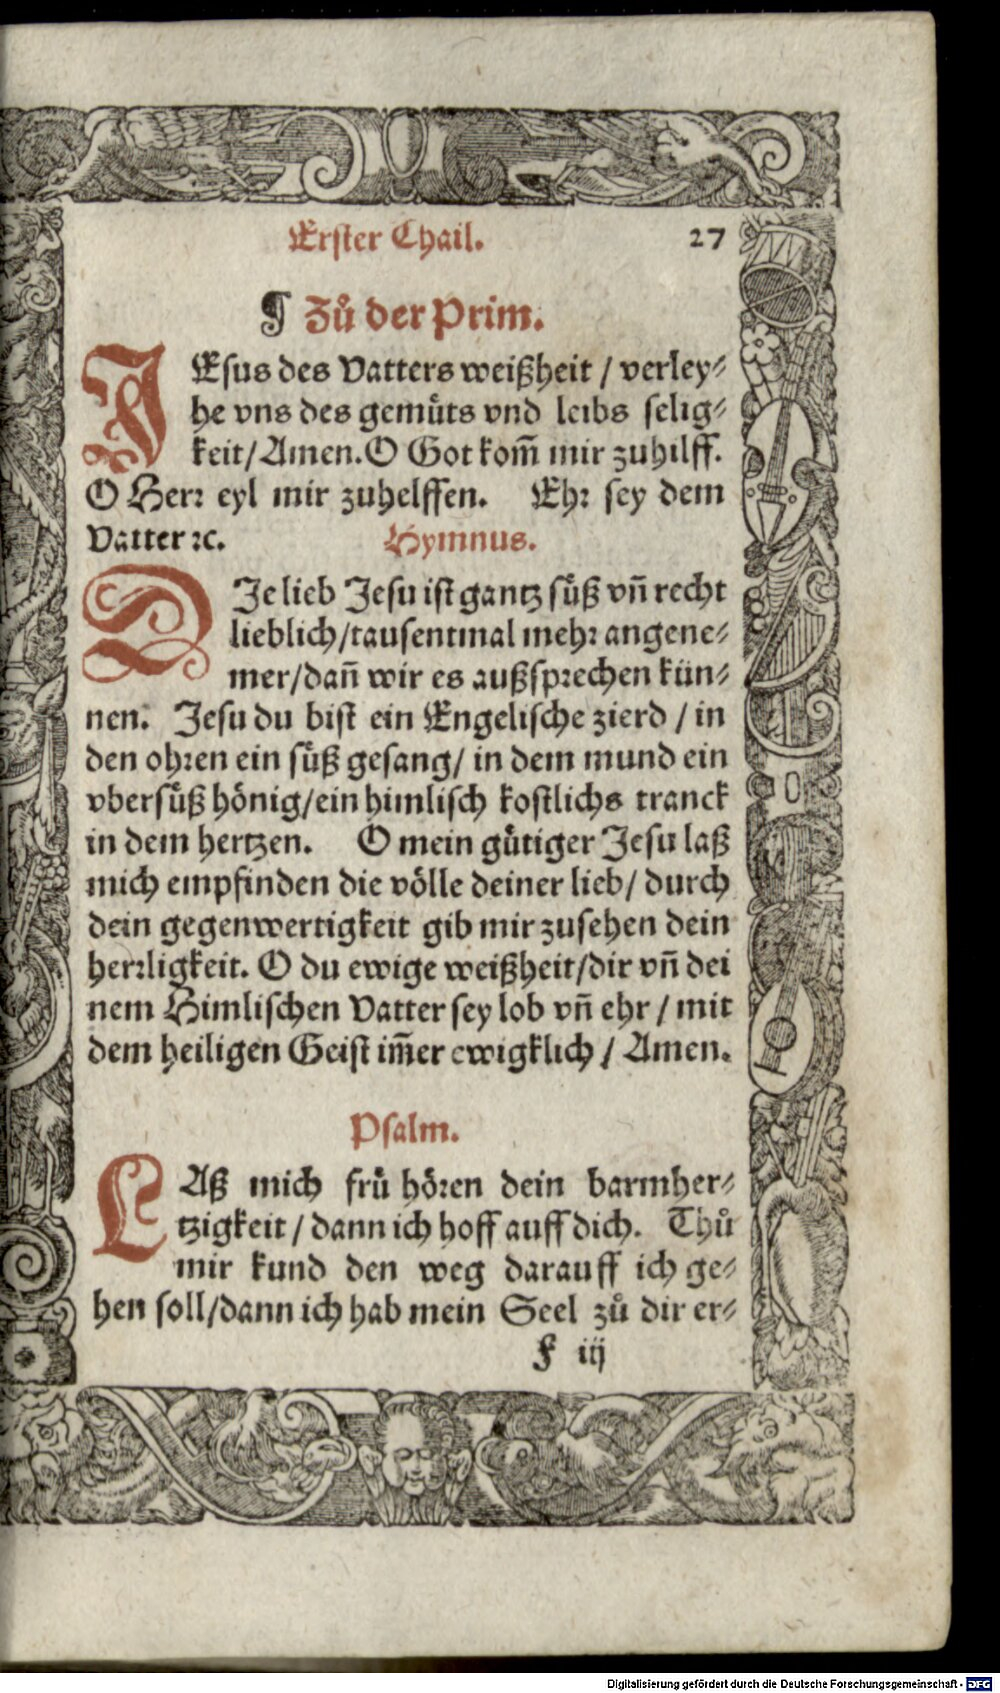 Erster Thail. 27
¶ Zů der Prim.
IEsus des Vatters weißheit / verley-
he vns des gemuͤts vnd leibs selig-
keit/ Amen. O Got kom̃ mir zuhilff.
O Herr eyl mir zuhelffen. Ehr sey dem
Vatter ꝛc. Hymnus.
DJe lieb Jesu ist gantz suͤß vñ recht
lieblich/tausentmal mehr angene-
mer/dañ wir es außsprechen kün-
nen. Jesu du bist ein Engelische zierd / in
den ohren ein suͤß gesang/ in dem mund ein
vbersuͤß hoͤnig/ein himlisch kostlichs tranck
in dem hertzen. O mein guͤtiger Jesu laß
mich empfinden die voͤlle deiner lieb/ durch
dein gegenwertigkeit gib mir zusehen dein
herrligkeit. O du ewige weißheit/dir vñ dei
nem Himlischen Vatter sey lob vñ ehr / mit
dem heiligen Geist im̃er ewigklich / Amen.
Psalm.
LAß mich fruͤ hoͤren dein barmher-
tzigkeit / dann ich hoff auff dich. Thů
mir kund den weg darauff ich ge-
hen soll/dann ich hab mein Seel zů dir er-
F iij
Digitalisierung gefördert durch die Deutsche Forschungsgemeinschaft - DFG